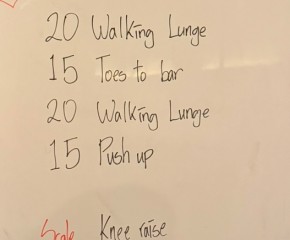 20 Walking Lunge
15 Toes to bar
20 Walking Lunge
15 Push up
Scale Knee raise